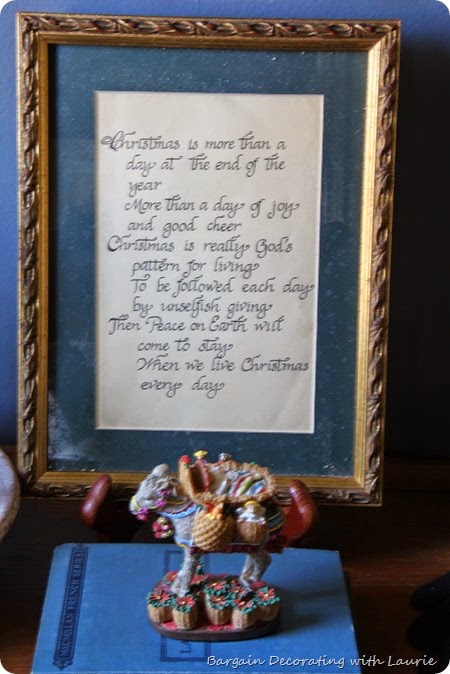 Christmas is more than a
day at the end of the
year
More than a day of joy
and good cheer
Christmas is really God's
pattern for living
To be followed each day
by unselfish giving
Then Peace on Earth will
come to stay
When we live Christmas
every day
MACMILLAN FRENCH SERIES
Bargain Decorating with Laurie